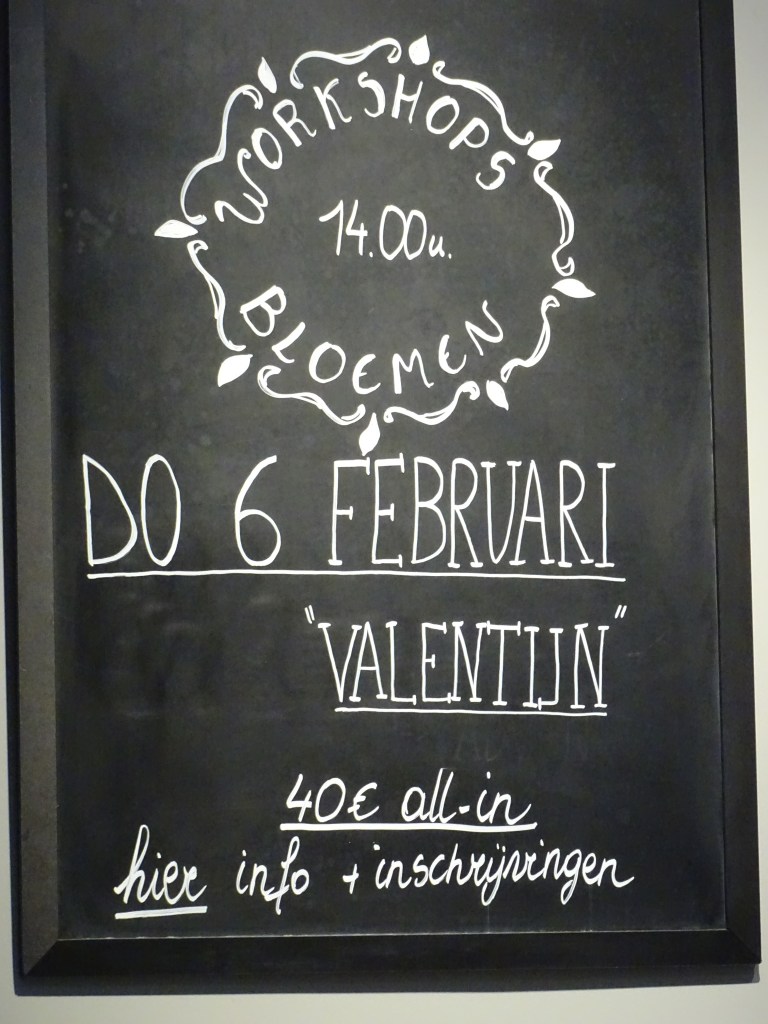 WORKSHOPS
14.00u.
BLOEMEN
DO 6 FEBRUARI
"VALENTIJN"
40€ all-in
hier info + inschrijvingen